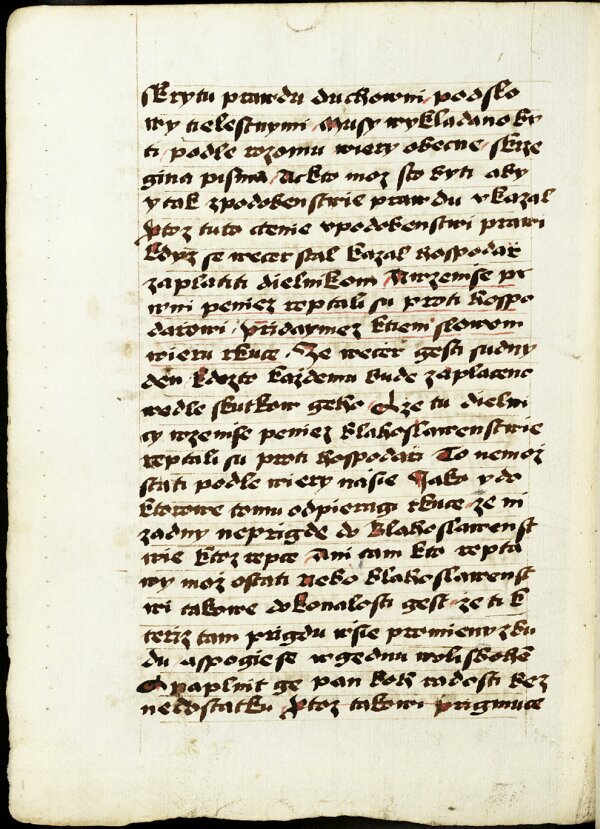 skrytu prawdu duchowni podslo
wy tielestnymi Musy wykladano by
ti podle rozomu wiery obecne skrze
gina pisma Ackto moz sto byti aby
y tak zpodobenstwie prawdu vkazal
Ptoz tuto ctenie vpodobenstwi prawi
kdyz se wecer stal kazal hospodar
zaplatiti dielnikom A wzemsse pr
wni peniez reptali su proti hospo
darowi Pridaymez ktiem slowom
wieru rkuce Ze wecer gest sudny
den kdezto kazdemu bude zaplaceno
wedle skutkow geho A ze tu dielni
cy wzemsse peniez blahoslawenstwie
reptali su proti hospodari To nemoz
stati podle wiery nasie Jako y do
ktorowe tomu odpieragi rkuce ze ni
zadny neprigde do blahoslawenst
wie ktoz repce Ani tam kto repta
wy moz ostati Nebo blahoslawenst
wi takowe dokonalosti gest ze ti k
teriz tam prigdu wsie promieny zbu
du a spogie se w gednu woli s bohem
A naplnit ge pan boh radosti bez
nedostatku Ptoz takowi prigmuce